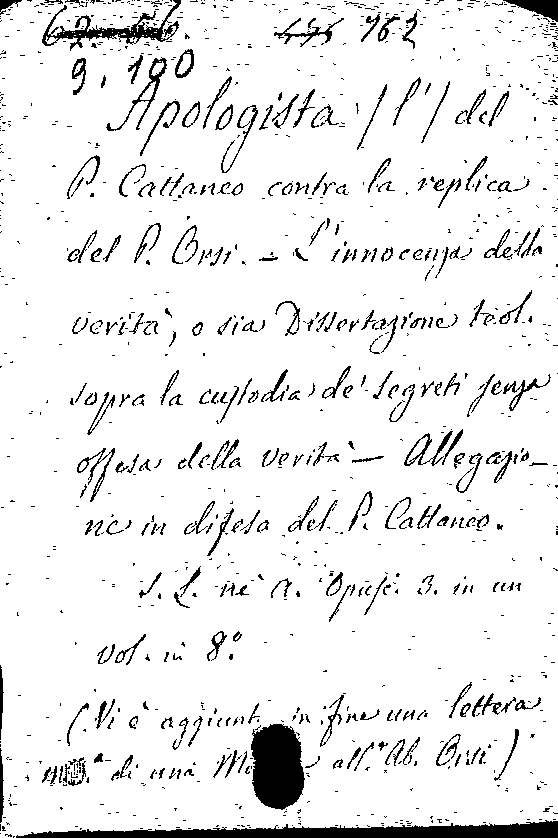 62. 56. 476 762
9. 100
Apologista /l'/ del
P. Cattaneo contra la replica
del P. Orsi. - L'innocenza della
verità, o sia Dissertazione teol.
sopra la custodia de' segreti senza
offesa della verità - Allegazio-
ne in difesa del P. Cattaneo.
S. L. nè A. Opusc. 3. in un
vol. in 8.°
(Vi è aggiunt in fine una lettera
di una all.' Ab. Orsi)